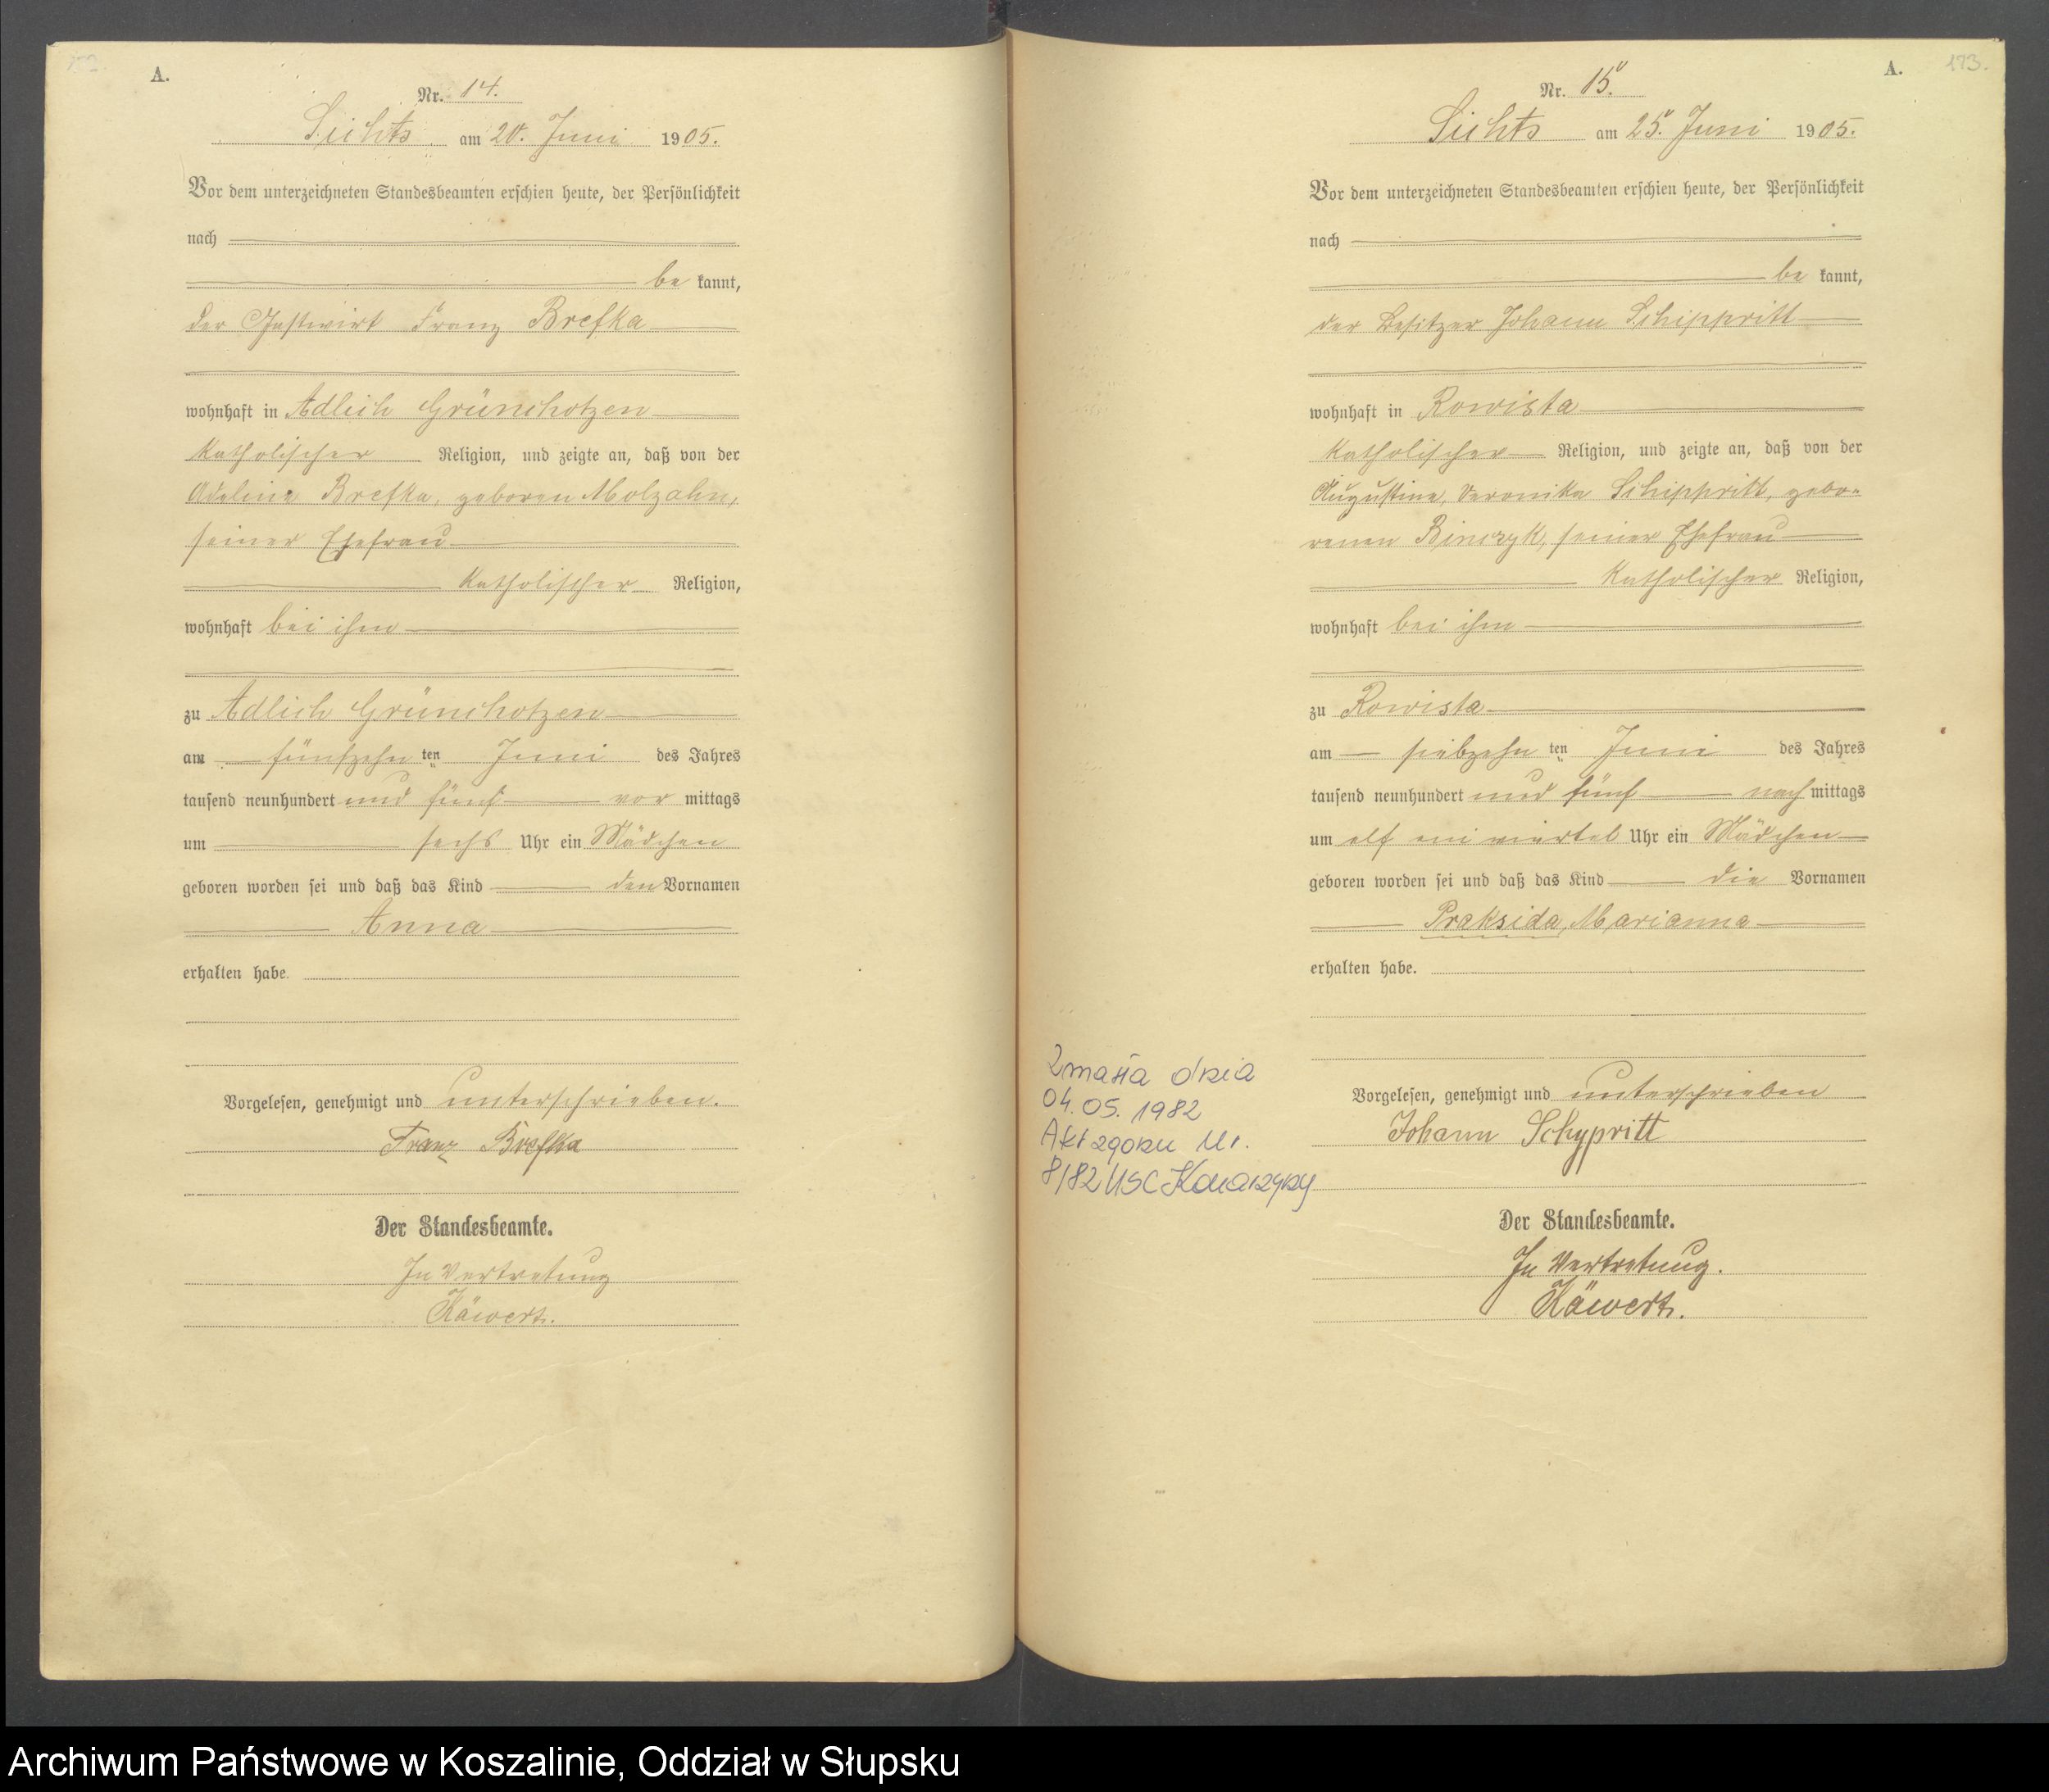 A.
Nr. 14.
Lichts am 20. Juni 1905.
Vor dem unterzeichneten Standesbeamten erschien heute, der Persönlichkeit
nach
be kannt,
der Gastwirt Franz Brefka
wohnhaft in Adlich Grünchotzen
katholischer Religion, und zeigte an, daß von der
Adeline Brefka, geboren Molzahn,
seiner Ehefrau
katholischer Religion,
wohnhaft bei ihm
zu Adlich Grünchotzen
am fünfzehn ten Juni des Jahres
tausend neunhundert und fünf vor mittags
um sechs Uhr ein Mädchen
geboren worden sei und daß das Kind den Vornamen
Anna
erhalten habe.
Vorgelesen, genehmigt und unterschrieben.
Franz Brefka
Der Standesbeamte.
In Vertretung
Käwert.
A.
173.
Nr. 15.
Lichts am 25. Juni 1905.
Vor dem unterzeichneten Standesbeamten erschien heute, der Persönlichkeit
nach
be kannt,
der Besitzer Johann Schippritt
wohnhaft in Rowista
katholischer Religion, und zeigte an, daß von der
Augustine, Veronika Schippritt, gebo-
renen Binczyk, seiner Ehefrau
katholischer Religion,
wohnhaft bei ihm
zu Rowista
am siebzehn ten Juni des Jahres
tausend neunhundert und fünf nach mittags
um elf ein viertel Uhr ein Mädchen
geboren worden sei und daß das Kind die Vornamen
Praksida, Marianna
erhalten habe.
Vorgelesen, genehmigt und unterschrieben
Johann Schypritt
Der Standesbeamte.
In Vertretung.
Käwert.
Zmarła dnia
04.05.1982
Akt zgonu Nr.
8/82 USC Konarzyny
Archiwum Państwowe w Koszalinie, Oddział w Słupsku